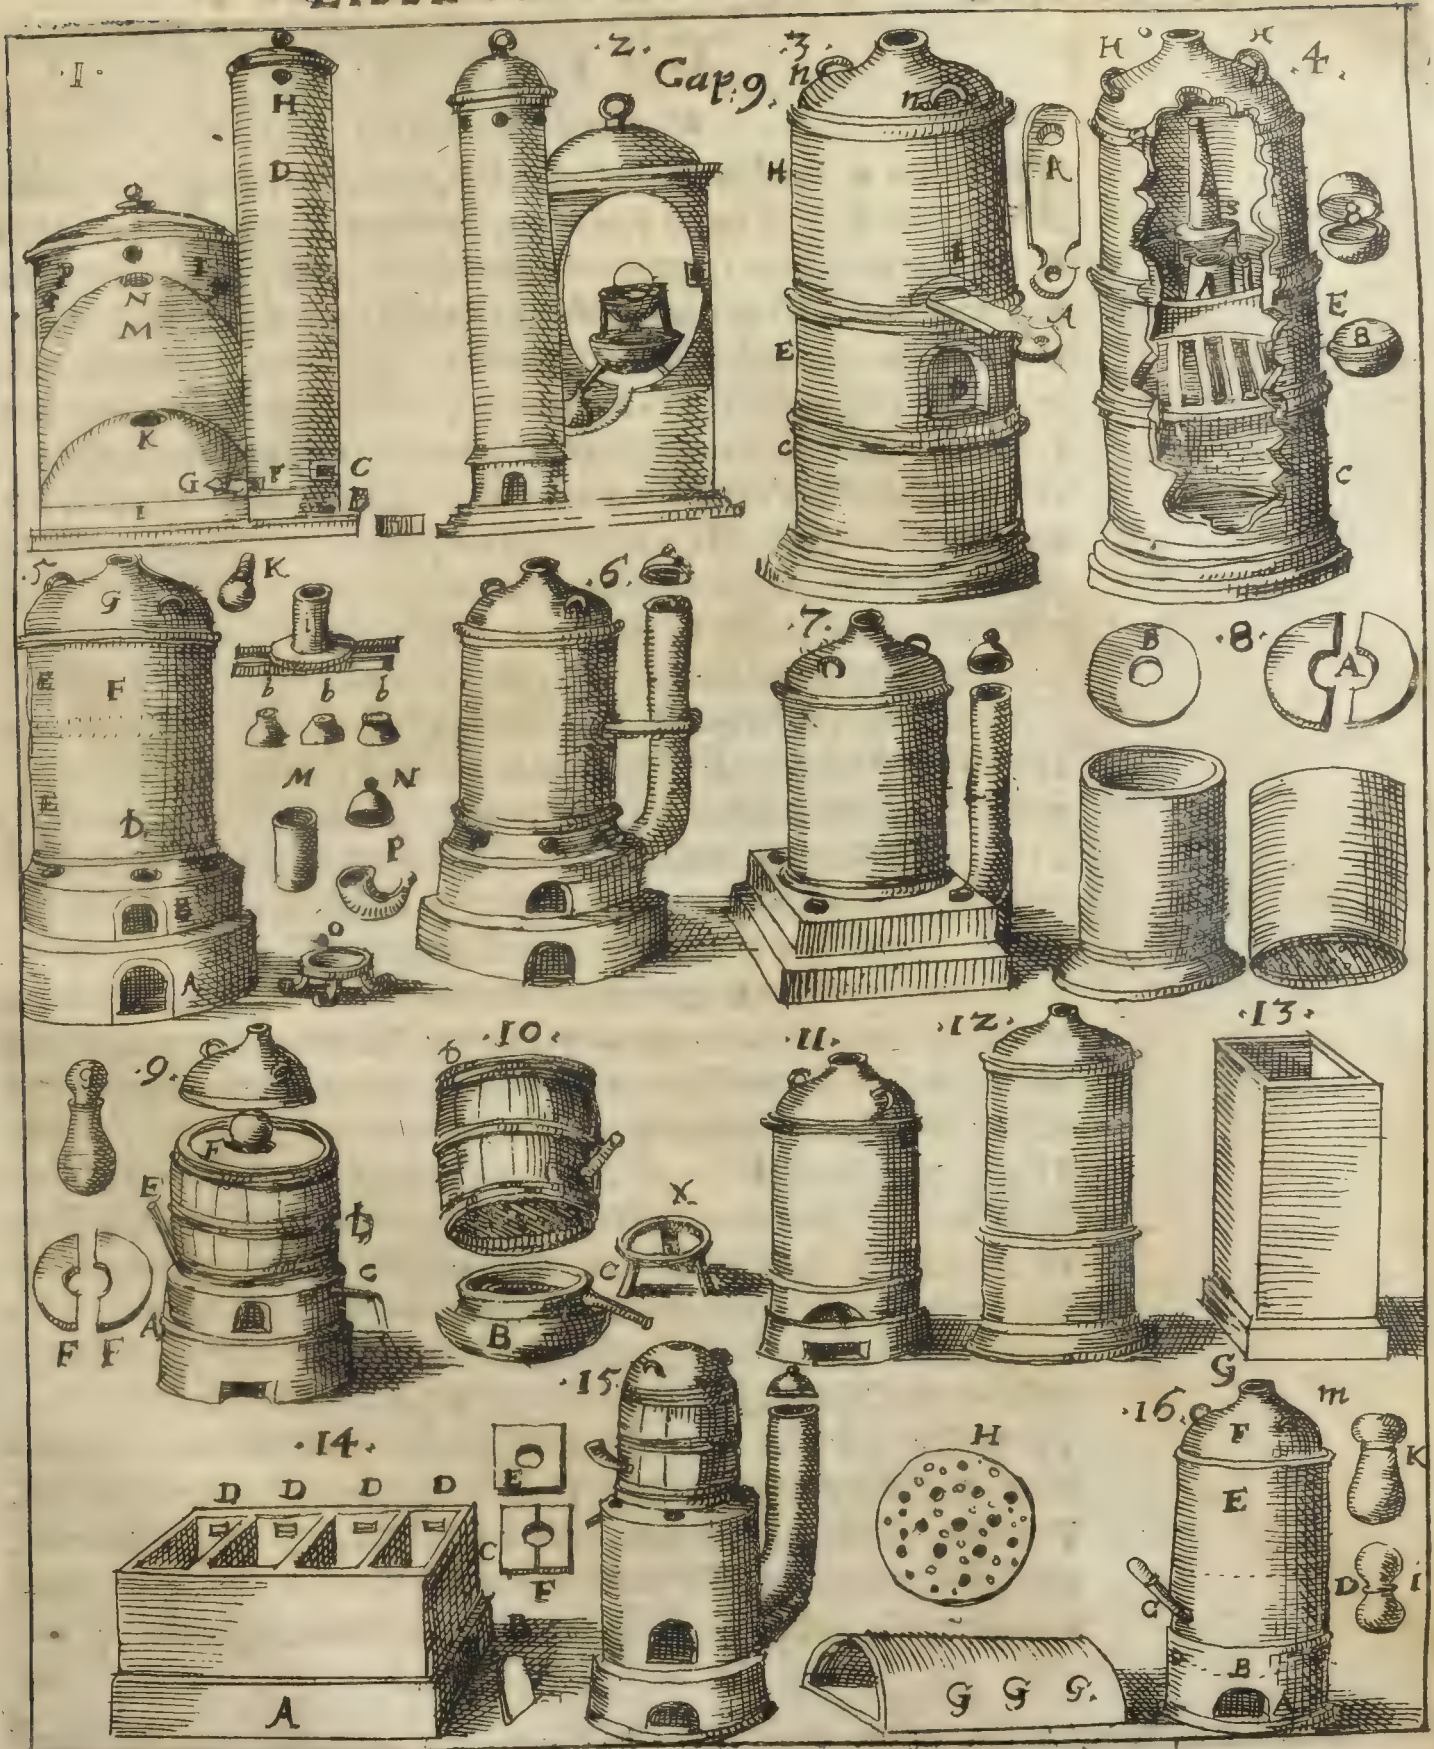 .1.
H
D
P
I
N
M
K
G
F
C
B
I
.2.
Cap. 9.
.3.
n
n
H
I
E
D
C
A
A
.4.
H
H
A
S
A
E
C
B
B
.5.
G
E
F
E
D
B
A
K
b b b
M
N
P
O
.6.
.7.
.8.
B
A
.9.
F
E
D
C
A
F F
.10.
B
C
X
.11.
.12.
.13.
G
.14.
D D D D
A
E
C
F
B
.15.
H
G G G.
.16.
m
F
E
K
D
I
G
B
A